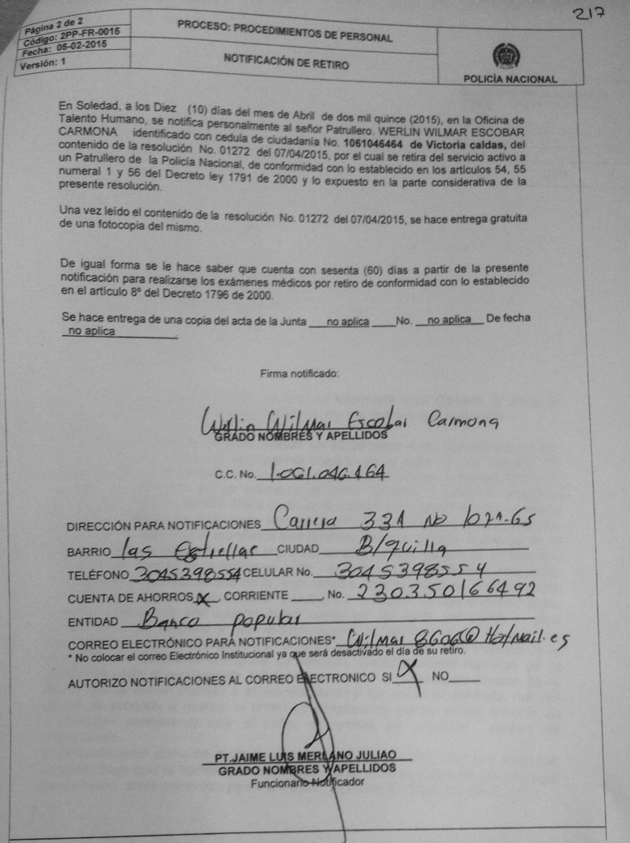 217
Página 2 de 2
Código: 2PP-FR-0015
Fecha: 05-02-2015
Versión: 1
PROCESO: PROCEDIMIENTOS DE PERSONAL
NOTIFICACIÓN DE RETIRO
POLICÍA NACIONAL
En Soledad, a los Diez (10) días del mes de Abril de dos mil quince (2015), en la Oficina de
Talento Humano, se notifica personalmente al señor Patrullero. WERLIN WILMAR ESCOBAR
CARMONA identificado con cedula de ciudadanía No. 1061046464 de Victoria caldas, del
contenido de la resolución No. 01272 del 07/04/2015, por el cual se retira del servicio activo a
un Patrullero de la Policía Nacional, de conformidad con lo establecido en los artículos 54, 55
numeral 1 y 56 del Decreto ley 1791 de 2000 y lo expuesto en la parte considerativa de la
presente resolución.
Una vez leído el contenido de la resolución No. 01272 del 07/04/2015, se hace entrega gratuita
de una fotocopia del mismo.
De igual forma se le hace saber que cuenta con sesenta (60) días a partir de la presente
notificación para realizarse los exámenes médicos por retiro de conformidad con lo establecido
en el artículo 8º del Decreto 1796 de 2000.
Se hace entrega de una copia del acta de la Junta no aplica No. no aplica De fecha
no aplica
Firma notificado:
Werlin Wilmar Escobar Carmona
GRADO NOMBRES Y APELLIDOS
C.C. No. 1.061.046.464
DIRECCIÓN PARA NOTIFICACIONES Carrera 33A No
BARRIO las Estrellas CIUDAD B/quilla
TELÉFONO 3045398554 CELULAR No. 3045398554
CUENTA DE AHORROS X, CORRIENTE ____, No. 230350166492
ENTIDAD Banco popular
CORREO ELECTRÓNICO PARA NOTIFICACIONES* Wilmar8606@Hotmail.es
* No colocar el correo Electrónico Institucional ya que será desactivado el día de su retiro.
AUTORIZO NOTIFICACIONES AL CORREO ELECTRONICO SI X NO____
PT.JAIME LUIS MERLANO JULIAO
GRADO NOMBRES Y APELLIDOS
Funcionario Notificador